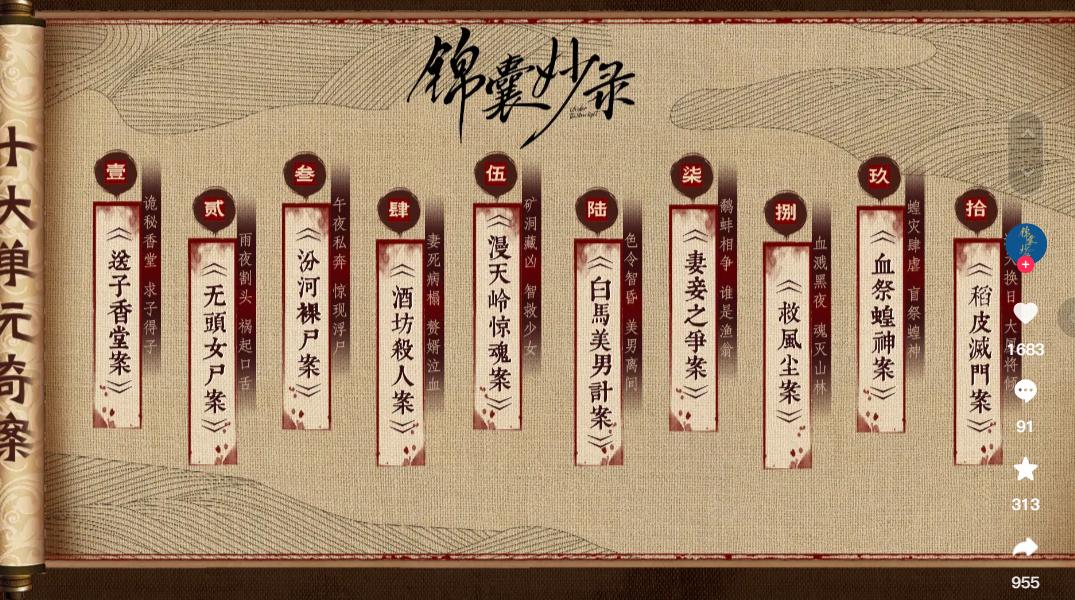 十大单元奇案
锦囊妙录
壹
《送子香堂案》
诡秘香堂 求子得子
贰
《无頭女尸案》
雨夜割头 祸起口舌
叁
《汾河裸尸案》
午夜私奔 惊现浮尸
肆
《酒坊殺人案》
妻死病榻 赘婿泣血
伍
《漫天岭惊魂案》
矿洞藏凶 智救少女
陆
《白馬美男計案》
色令智昏 美男离间
柒
《妻妾之爭案》
鹬蚌相争 谁是渔翁
捌
《救風尘案》
血溅黑夜 魂灭山林
玖
《血祭蝗神案》
蝗灾肆虐 盲祭蝗神
拾
《稻皮滅門案》
换日 大 将倾
1683
91
313
955